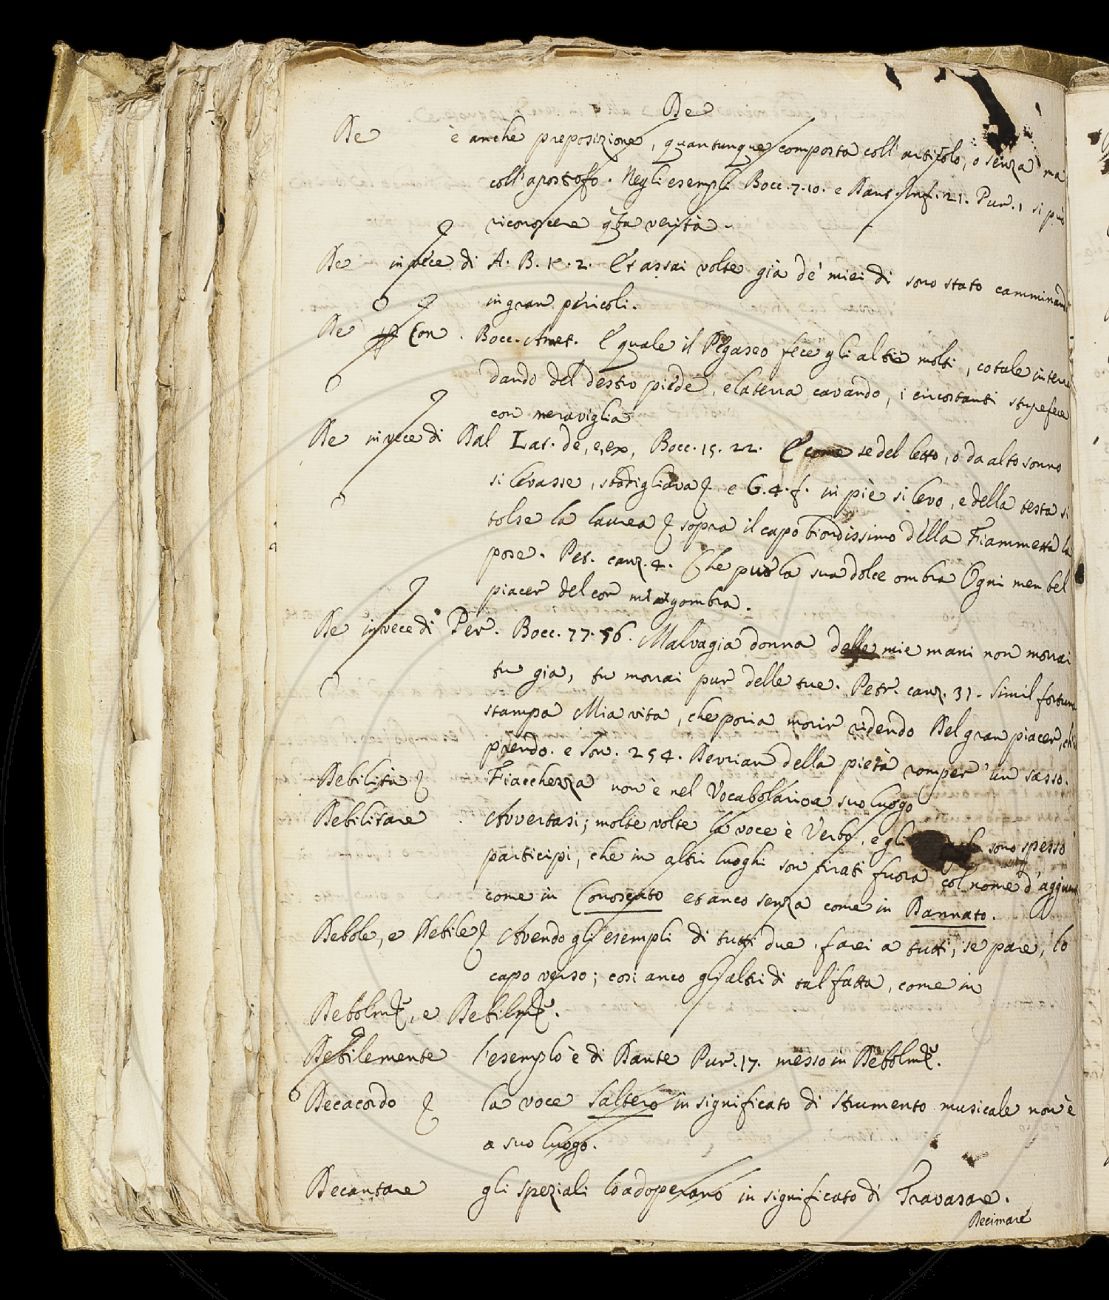 De
De è anche preposizione, quantunque composta coll'articolo, o senza ma
coll'apostoffo. Negli esempli Bocc. 7. 10. e Dant. Inf. 21. Pur. 1 si può
riconoscere qta verità.
De in vece di A. B. 15. 2. Et assai volte già de' miei dì sono stato camminando
in gran pericoli.
De Con. Bocc. Amet. E quale il Pegaseo fece gli altri molti, cotale interra
dando del destro piede, e la terra cavando, i circostanti stupefece
con meraviglia
De in vece di Dal Lat. de, e, ex, Bocc. 15. 22. E come se del letto, o da alto sonno
si levasse, sbadigliava e G. 4. f. in piè si levò, e della testa si
tolse la laurea sopra il capo biondissimo della Fiammetta la
pose. Pet. canz. 4. Che pur la sua dolce ombra Ogni men bel
piacer del cor mi sgombra.
De in vece di Per. Bocc. 77. 56. Malvagia donna delle mie mani non morrai
tu già, tu morrai pur delle tue. Petr. canz. 31. Simil fortuna
stampa Mia vita, che poria morir ridendo Del gran piacer, ch'i
prendo. e Son. 254. Devrian della pietà romper un sasso.
Debilità Fiacchezza non è nel Vocabolario a suo luogo
Debilitare Avvertasi; molte volte la voce è Verbo, e gli sono spesso
participi, che in altri luoghi son tirati fuora col nome d'aggiunti
come in Conosciuto et anco senza come in Dannato.
Debole, e Debile Avendo gli esempli di tutti due, farei a tutti, se pare, lo
capo verso; così anco gli altri di tal fatta, come in
Debolmte, e Debilmte.
Debilemente l'esemplo è di Dante Pur. 17. messo in Debolmte.
Decacordo la voce Saltero in significato di strumento musicale non è
a suo luogo.
Decantare gli speziali lo adoperano in significato di Travasare.
Decimare